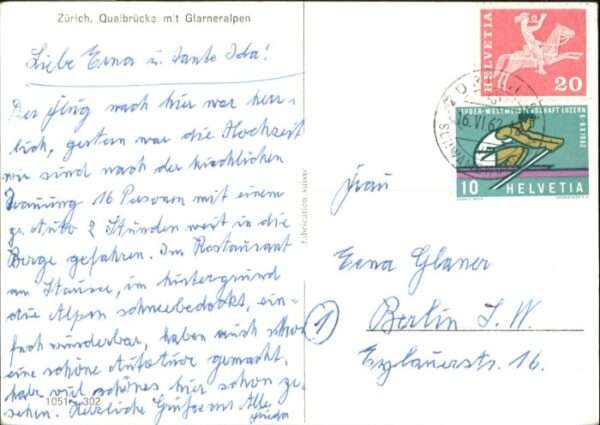 Zürich, Quaibrücke mit Glarneralpen
Liebe Erna u. Tante Ida!
Der Flug nach hier war herr-
lich, gestern war die Hochzeit
wir sind nach der kirchlichen
Trauung 16 Personen mit einem
gr. Auto 2 Stunden weit in die
Berge gefahren. Im Restaurant
am Stausee, im Hintergrund
die Alpen schneebedeckt, ein-
fach wunderbar, haben auch schon
eine schöne Autotour gemacht,
habe viel schönes hier schon ge-
sehen. Herzliche Grüsse an Alle
10514 302
Fabrication suisse
HELVETIA
20
16.VI.62
LUZERN
10 HELVETIA
Frau
Erna Glaner
1
Berlin S.W.
Eylauerstr. 16.